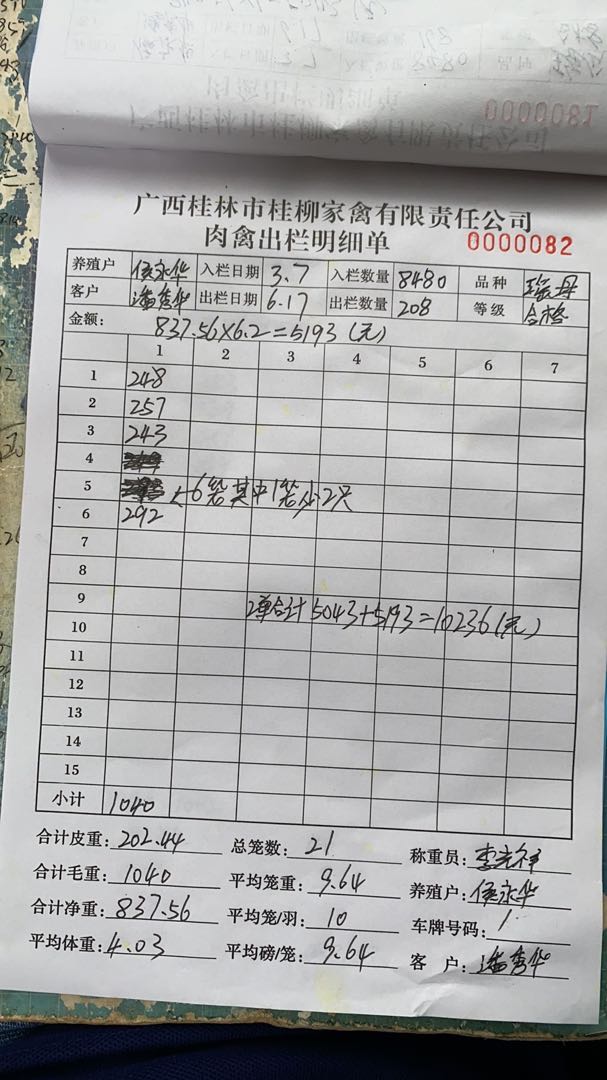 广西桂林市桂柳家禽有限责任公司
肉禽出栏明细单 0000082
养殖户 侯永华 入栏日期 3.7 入栏数量 8480 品种 瑶母
客户 潘秀华 出栏日期 6.17 出栏数量 208 等级 合格
金额: 837.56×6.2=5193(元)
1 2 3 4 5 6 7
1 248
2 257
3 243
4
5 6笼其中1笼少2只
6 292
7
8
9 2单合计5043+5193=10236(元)
10
11
12
13
14
15
小计 1040
合计皮重: 202.44 总笼数: 21 称重员: 李
合计毛重: 1040 平均笼重: 9.64 养殖户: 侯永华
合计净重: 837.56 平均笼/羽: 10 车牌号码: 1
平均体重: 4.03 平均磅/笼: 9.64 客户: 潘秀华